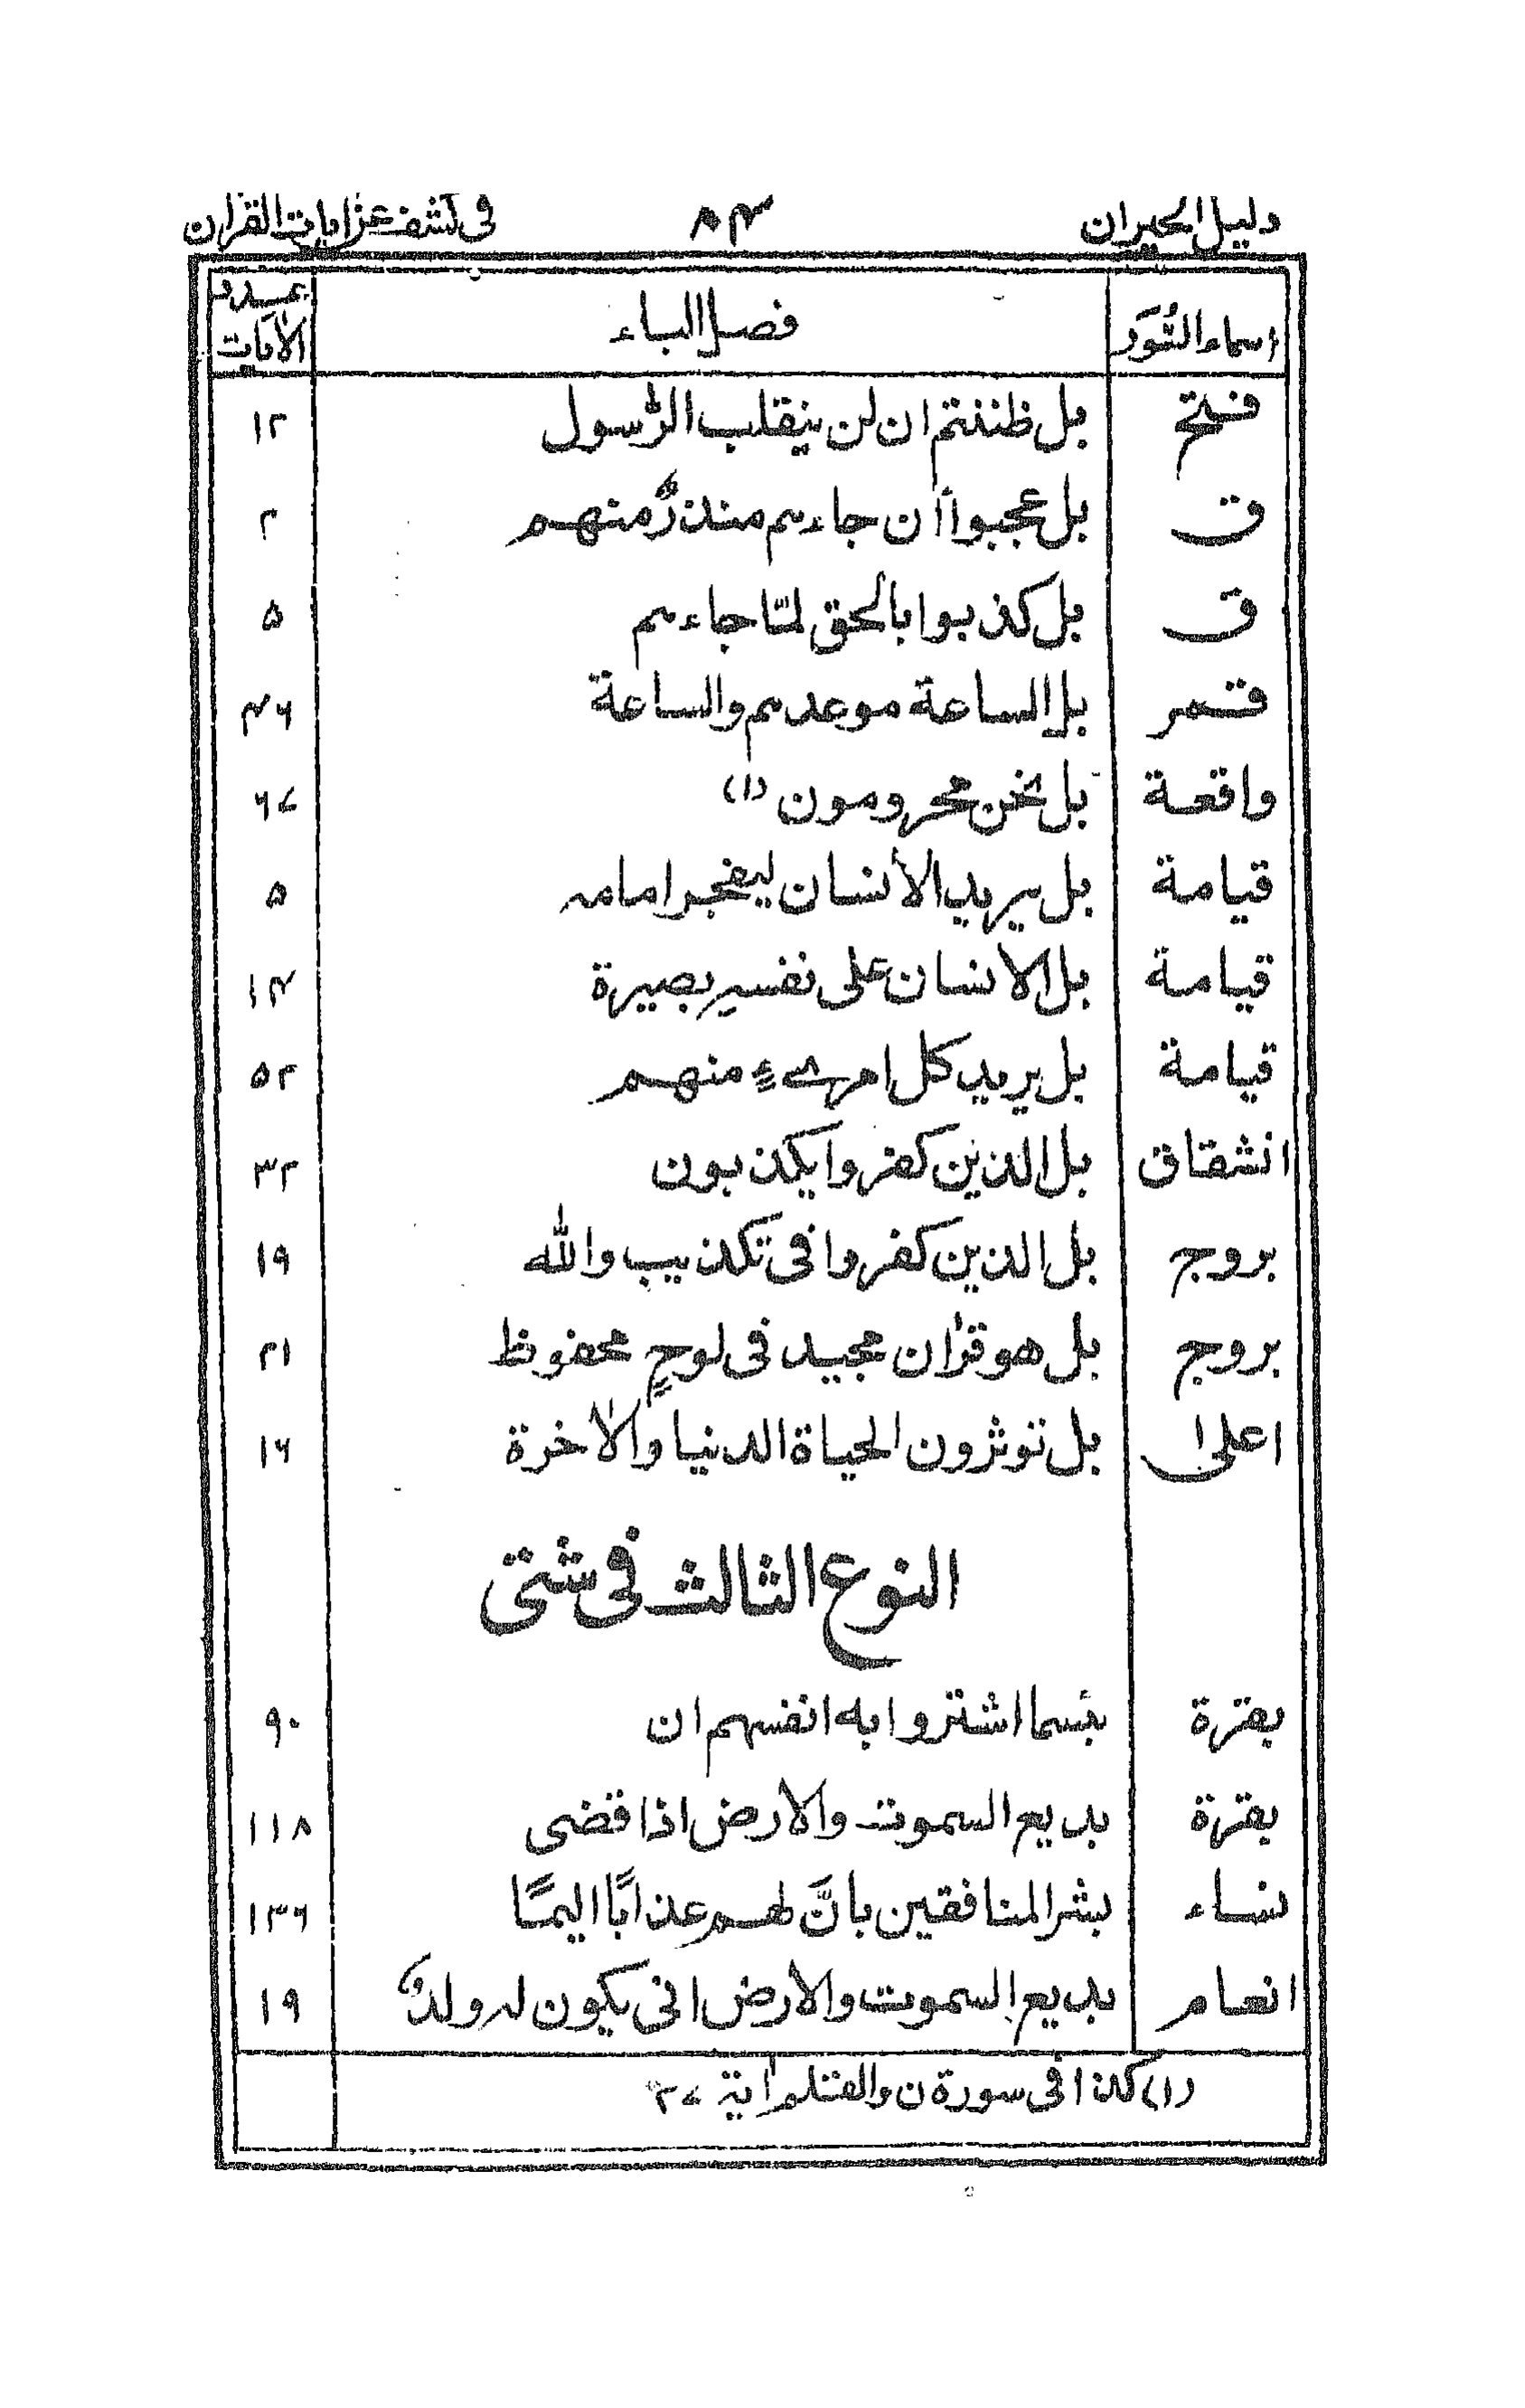 دليل الحيران ٨٤ في كشف عن اٰيات القراٰن
اسماء السُّوَر فصل الباء عدد الاٰيات
فتح بل ظننتم ان لن ينقلب الرّسول ١٢
ق بل عجبوا أن جاءهم منذرٌ منهم ٢
ق بل كذبوا بالحق لمّا جاءهم ۵
قمر بل الساعة موعدهم والساعة ۴۶
واقعة بل نحن محرومون (١) ۶۷
قيامة بل يريد الأنسان ليفجر امامه ۵
قيامة بل الانسان على نفسهِ بصيرة ١۴
قيامة بل يريد كل امرىءٍ منهم ۵٢
انشقاق بل الذين كفروا يكذبون ٣٢
بروج بل الذين كفروا فى تكذيب والله ١٩
بروج بل هو قراٰن مجيد فى لوحٍ محفوظ ٢١
اعلى بل تؤثرون الحياة الدنيا والاٰخرة ١۶
النوع الثالث فى شتى
بقرة بئسما اشتروا به انفسهم ان ٩٠
بقرة بديع السموت والارض اذا قضى ١١٨
نساء بشر المنافقين بانَّ لهم عذابًا اليمًا ١٣۶
انعام بديع السموت والأرض انى يكون له ولدٌ ١٩
(١) كذا فى سورة ن والقلم اٰية ٢٧